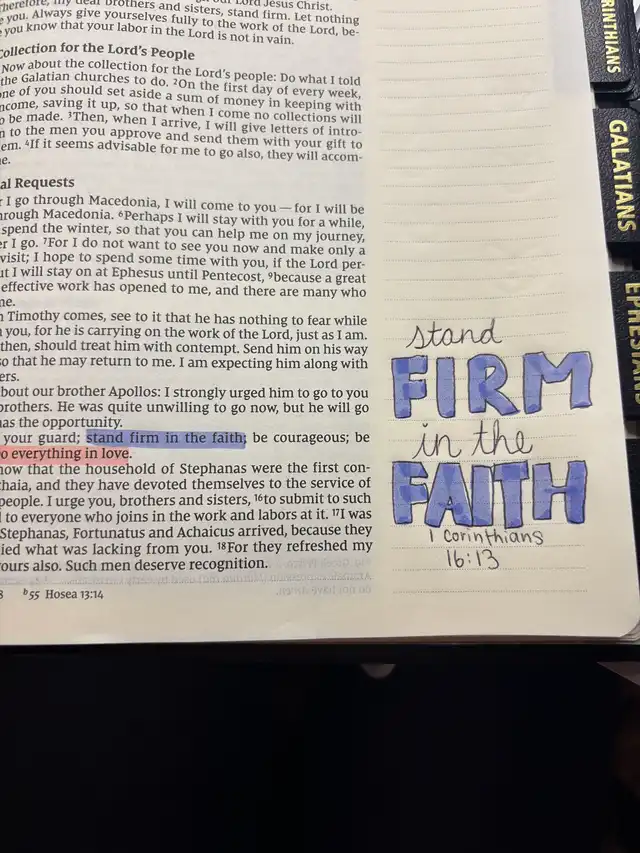 my dear brothers and sisters, stand firm. Let nothing
you. Always give yourselves fully to the work of the Lord, be-
you know that your labor in the Lord is not in vain.
ollection for the Lord's People
Now about the collection for the Lord's people: Do what I told
the Galatian churches to do. ²On the first day of every week,
one of you should set aside a sum of money in keeping with
ncome, saving it up, so that when I come no collections will
o be made. ³Then, when I arrive, I will give letters of intro-
n to the men you approve and send them with your gift to
em. ⁴If it seems advisable for me to go also, they will accom-
e.
al Requests
r I go through Macedonia, I will come to you — for I will be
hrough Macedonia. ⁶Perhaps I will stay with you for a while,
spend the winter, so that you can help me on my journey,
er I go. ⁷For I do not want to see you now and make only a
visit; I hope to spend some time with you, if the Lord per-
ut I will stay on at Ephesus until Pentecost, ⁹because a great
effective work has opened to me, and there are many who
me.
n Timothy comes, see to it that he has nothing to fear while
you, for he is carrying on the work of the Lord, just as I am.
then, should treat him with contempt. Send him on his way
so that he may return to me. I am expecting him along with
ers.
about our brother Apollos: I strongly urged him to go to you
brothers. He was quite unwilling to go now, but he will go
has the opportunity.
your guard; stand firm in the faith; be courageous; be
o everything in love.
now that the household of Stephanas were the first con-
chaia, and they have devoted themselves to the service of
people. I urge you, brothers and sisters, ¹⁶to submit to such
d to everyone who joins in the work and labors at it. ¹⁷I was
Stephanas, Fortunatus and Achaicus arrived, because they
ied what was lacking from you. ¹⁸For they refreshed my
yours also. Such men deserve recognition.
8 ᵇ55 Hosea 13:14
stand
FIRM
in the
FAITH
1 Corinthians
16:13
RINTHIANS
GALATIANS
EPHESIANS